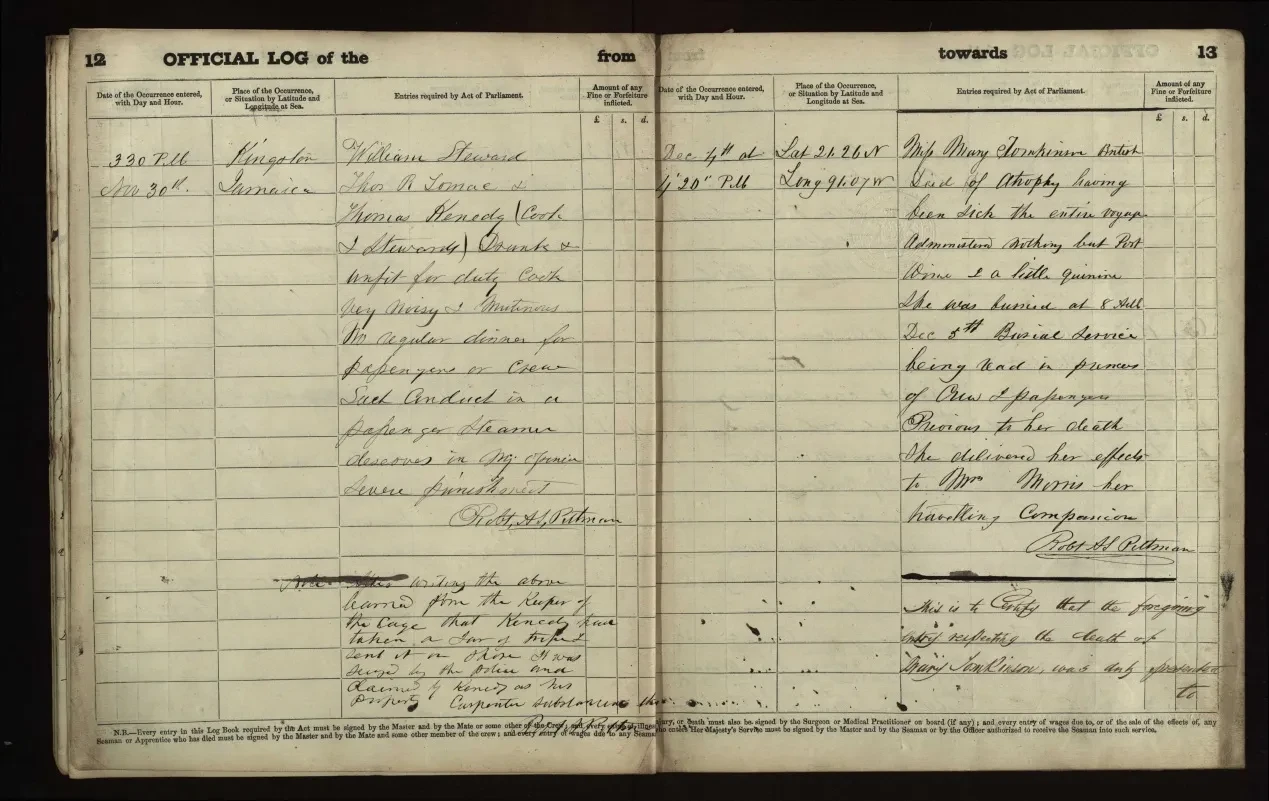 12 OFFICIAL LOG of the from
Date of the Occurrence entered, with Day and Hour.
Place of the Occurrence, or Situation by Latitude and Longitude at Sea.
Entries required by Act of Parliament.
Amount of any Fine or Forfeiture inflicted.
£ s. d.
3 30 P.M Kingston William Steward
Nov 30th. Jamaica Thos R Tomac &
Thomas Kenedy (Cook
& Stewards) Drunk &
unfit for duty Cook
very noisy & Mutinous
No regular dinner for
passengers or Crew
Such Conduct in a
passenger Steamer
deserves in my opinion
severe punishment
Robt A S Pittman
Note After writing the above
learned from the Keeper of
the Cage that Kenedy have
taken a Jar of tripe &
sent it on shore It was
seized by the Police and
claimed by Kenedy as his
property Carpenter substantiates this
towards 13
Date of the Occurrence entered, with Day and Hour.
Place of the Occurrence, or Situation by Latitude and Longitude at Sea.
Entries required by Act of Parliament.
Amount of any Fine or Forfeiture inflicted.
£ s. d.
Dec 4th at Lat 21.26 N Miss Mary Tomkinson British
4' 20" P.M Long 91.07 W Died of Atrophy having
been sick the entire voyage
Administered nothing but Port
Wine & a little quinine
She was burried at 8 AM
Dec 5th Burial Service
being read in presence
of Crew & passengers
Previous to her death
She delivered her effects
to Mrs Morris her
travelling Companion
Robt A S Pittman
This is to Certify that the foregoing
entry respecting the death of
Mary Tomkinson, was duly presented
to
N.B.—Every entry in this Log Book required by the Act must be signed by the Master and by the Mate or some other of the Crew; and every entry of illness, injury, or death must also be signed by the Surgeon or Medical Practitioner on board (if any); and every entry of wages due to, or of the sale of the effects of, any
Seaman or Apprentice who has died must be signed by the Master and by the Mate and some other member of the crew; and every entry of wages due to any Seaman who enters Her Majesty's Service must be signed by the Master and by the Seaman or by the Officer authorized to receive the Seaman into such service.